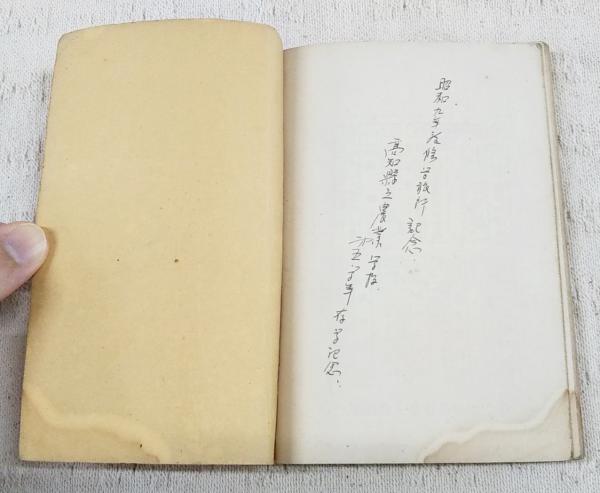 昭和九年度修学旅行記念.
高知縣立農業学校.
才五学年在学記念.